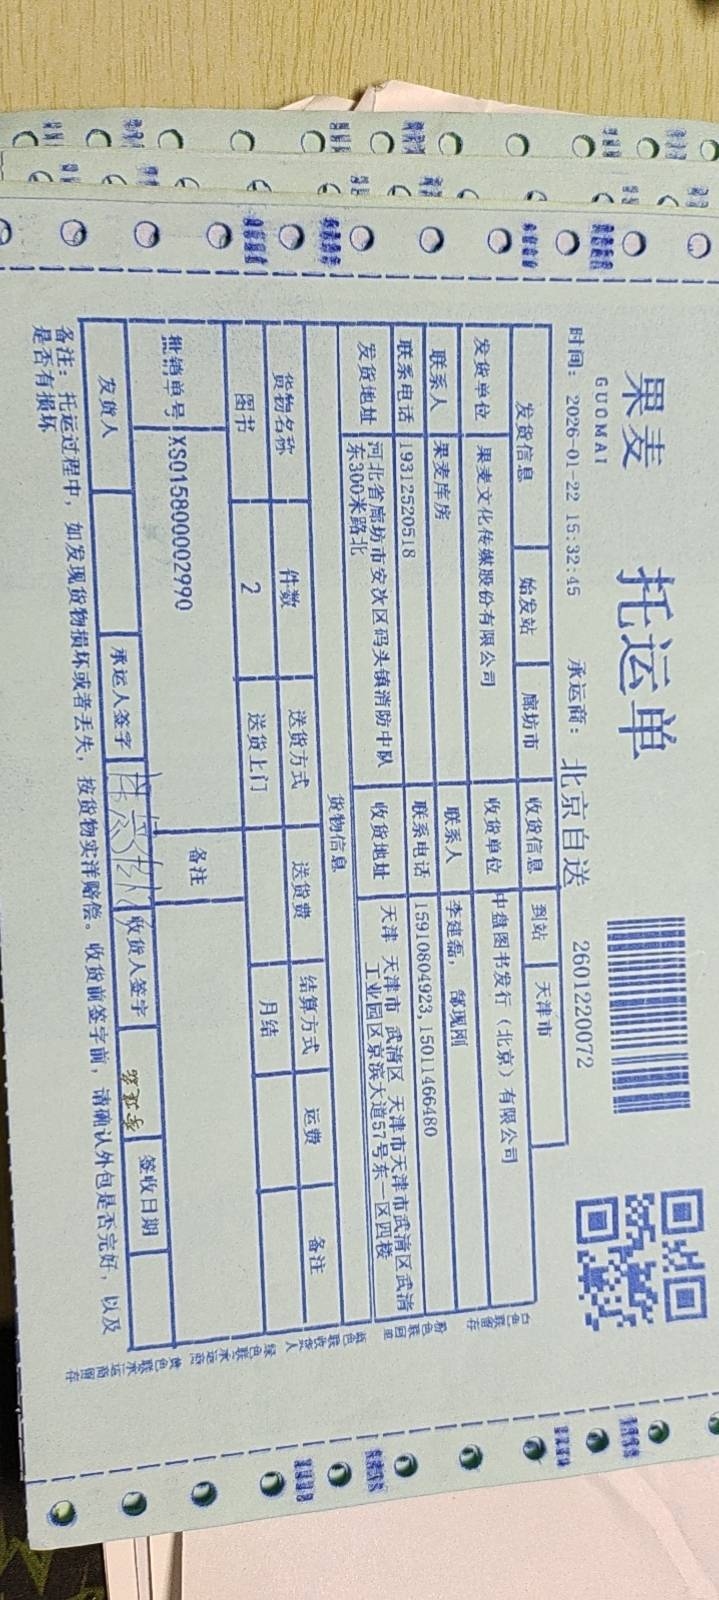 果麦
GUOMAI
托运单
时间: 2026-01-22 15:32:45 承运商: 北京自送 2601220072
发货信息 始发站 廊坊市 收货信息 到站 天津市
发货单位 果麦文化传媒股份有限公司 收货单位 中盘图书发行（北京）有限公司
联系人 果麦库房 联系人 李建磊, 郜现刚
联系电话 19312520518 联系电话 15910804923,15011466480
发货地址 河北省廊坊市安次区码头镇消防中队东300米路北 收货地址 天津 天津市 武清区 天津市天津市武清区武清工业园区京滨大道57号东一区四楼
货物信息
货物名称 件数 送货方式 送货费 结算方式 运费 备注
图书 2 送货上门 月结
批销单号 XS015800002990 备注
发货人 承运人签字 收货人签字 签收日期
备注: 托运过程中, 如发现货物损坏或者丢失, 按货物实洋赔偿。收货前签字前, 请确认外包是否完好, 以及
是否有损坏
白色联留存
粉色联回里
蓝色联收货人
绿色联承运商
黄色联承运商留存